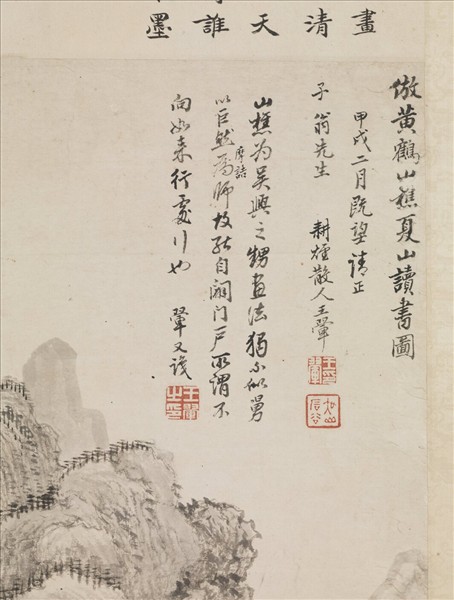 畫
清
天
誰
墨
倣黃鶴山樵夏山讀書圖
甲戌二月既望請正
子翁先生 耕煙散人王翬
山樵為吳興之甥畫法獨不似舅
以巨然摩詰為師故能自闢门戶所謂不
向如来行處行也 翬又識
王翬之印